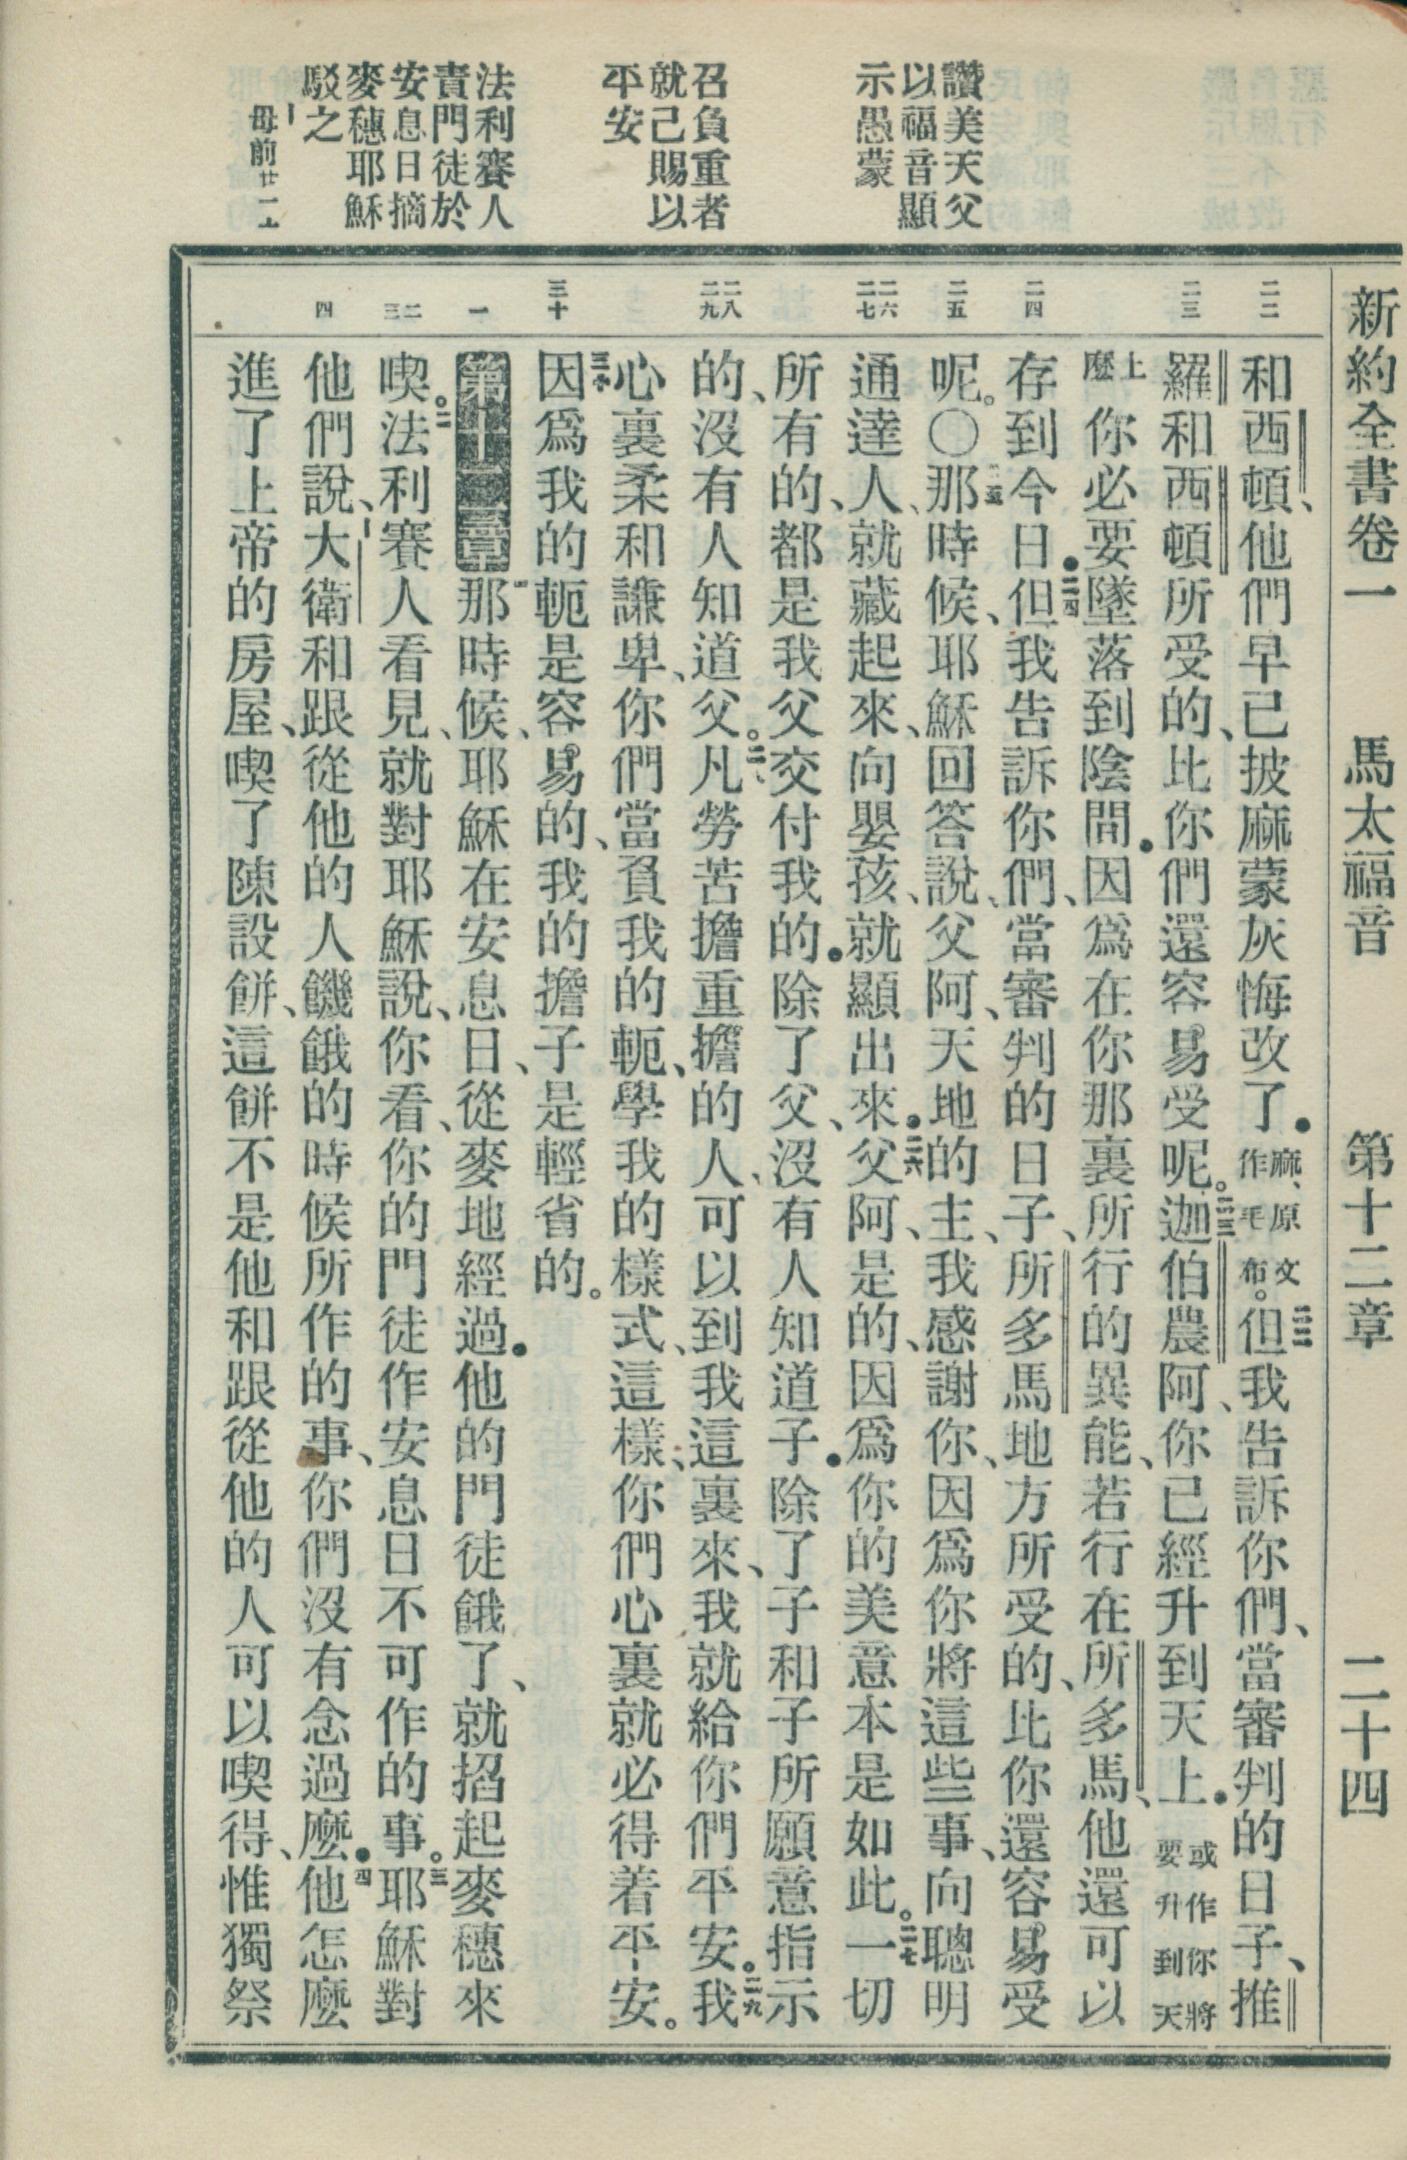 新約全書卷一　馬太福音　第十二章　二十四
讚美天父
以福音顯
示愚蒙
召負重者
就己賜以
平安
法利賽人
責門徒於
安息日摘
麥穗耶穌
駁之
母前廿一
二二
二三
二四
二五
二六
二七
二八
二九
三十
一
二
三
四
和西頓、他們早已披麻蒙灰悔改了●麻、原文作毛布。二二但我告訴你們、當審判的日子、推
羅和西頓所受的、比你們還容易受呢。二三迦伯農阿、你已經升到天上●或作你將要升到天
上麼你必要墜落到陰間●因爲在你那裏所行的異能、若行在所多馬、他還可以
存到今日●二四但我告訴你們、當審判的日子、所多馬地方所受的、比你還容易受
呢。〇二五那時候、耶穌回答說、父阿、天地的主、我感謝你、因爲你將這些事、向聰明
通達人、就藏起來、向嬰孩、就顯出來●二六父阿、是的、因爲你的美意本是如此。二七一切
所有的、都是我父交付我的●除了父、沒有人知道子●除了子和子所願意指示
的、沒有人知道父。二八凡勞苦擔重擔的人、可以到我這裏來、我就給你們平安。二九我
心裏柔和謙卑、你們當負我的軛、學我的樣式、這樣、你們心裏就必得着平安。
三十因爲我的軛是容易的、我的擔子是輕省的。
第十二章一那時候、耶穌在安息日、從麥地經過●他的門徒餓了、就掐起麥穗來
喫。二法利賽人看見、就對耶穌說、你看、你的門徒作安息日不可作的事。三耶穌對
他們說、大衛和跟從他的人饑餓的時候所作的事、你們沒有念過麼●四他怎麼
進了上帝的房屋、喫了陳設餅、這餅不是他和跟從他的人可以喫得、惟獨祭